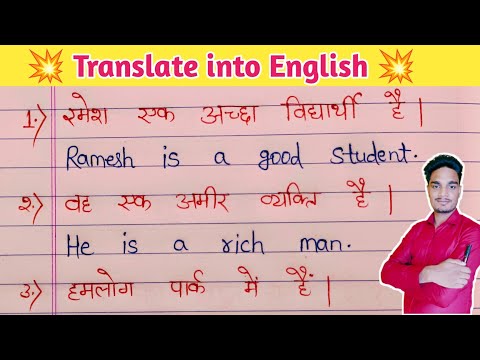 Translate into English
1.) रमेश एक अच्छा विद्यार्थी है |
Ramesh is a good student.
२.) वह एक अमीर व्यक्ति है |
He is a rich man.
3.) हमलोग पार्क में हैं |